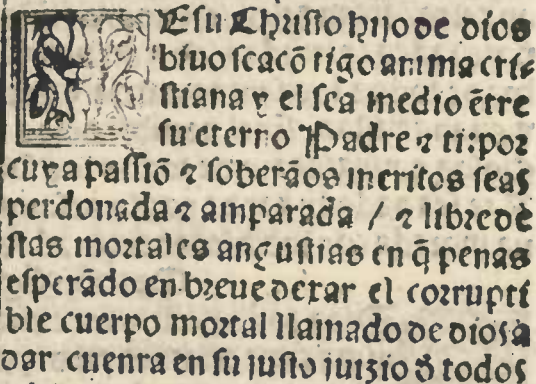 Esu Christo hijo de dios
biuo sea cõtigo anima cris
tiana y el sea medio ẽtre
su eterno Padre ⁊ ti: por
cuya passiõ ⁊ soberãos meritos seas
perdonada ⁊ amparada / ⁊ libre de
stas mortales angustias en q̃ penas
esperãdo en breue dexar el corrupti
ble cuerpo mortal llamado de dios à
dar cuenta en su justo juizio d̃ todos